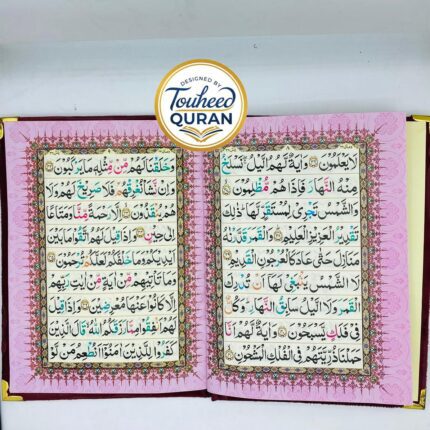 DESIGNED BY
Touheed
QURAN
لَا يَعْلَمُوْنَ وَاٰيَةٌ لَّهُمُ الَّيْلُ نَسْلَخُ
مِنْهُ النَّهَارَ فَاِذَا هُمْ مُّظْلِمُوْنَ
وَالشَّمْسُ تَجْرِيْ لِمُسْتَقَرٍّ لَّهَا ذٰلِكَ
تَقْدِيْرُ الْعَزِيْزِ الْعَلِيْمِ وَالْقَمَرَ قَدَّرْنٰهُ
مَنَازِلَ حَتّٰى عَادَ كَالْعُرْجُوْنِ الْقَدِيْمِ
لَا الشَّمْسُ يَنْۢبَغِيْ لَهَا اَنْ تُدْرِكَ
الْقَمَرَ وَلَا الَّيْلُ سَابِقُ النَّهَارِ وَكُلٌّ
فِيْ فَلَكٍ يَّسْبَحُوْنَ وَاٰيَةٌ لَّهُمْ اَنَّا
حَمَلْنَا ذُرِّيَّتَهُمْ فِي الْفُلْكِ الْمَشْحُوْنِ
وَخَلَقْنَا لَهُمْ مِّنْ مِّثْلِهٖ مَا يَرْكَبُوْنَ
وَاِنْ نَّشَاْ نُغْرِقْهُمْ فَلَا صَرِيْخَ لَهُمْ وَلَا
هُمْ يُنْقَذُوْنَ اِلَّا رَحْمَةً مِّنَّا وَمَتَاعًا
اِلٰى حِيْنٍ وَاِذَا قِيْلَ لَهُمُ اتَّقُوْا مَا بَيْنَ
اَيْدِيْكُمْ وَمَا خَلْفَكُمْ لَعَلَّكُمْ تُرْحَمُوْنَ
وَمَا تَاْتِيْهِمْ مِّنْ اٰيَةٍ مِّنْ اٰيٰتِ رَبِّهِمْ
اِلَّا كَانُوْا عَنْهَا مُعْرِضِيْنَ وَاِذَا قِيْلَ
لَهُمْ اَنْفِقُوْا مِمَّا رَزَقَكُمُ اللّٰهُ قَالَ الَّذِيْنَ
كَفَرُوْا لِلَّذِيْنَ اٰمَنُوْٓا اَنُطْعِمُ مَنْ لَّوْ